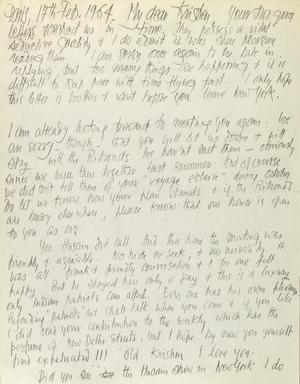 Paris, 19th Feb. 1964. My dear Krishen, Your two good
letters reached us in time. They possess a
seductive quality & I do admit it gives sheer pleasure
reading them. I am sorry once again to be late in
replying but too many things are happening & it is
difficult to keep pace with time flying past. I only hope
this letter is written & sent before you leave New York.
I am already looking forward to meeting you again. We
are sorry, though that you will with us
stay with the We haven't met them — obviously
since we have been together last summer. And of course
we did not tell them of your "voyage éclair" during October.
let us know how your plan stands & if the
are busy elsewhere, please know that our house is open
to you as ever.
Yes. Husain did call. And this time the meeting was
friendly & agreable. No hide or seek, & no reservation. It
was all frank & friendly conversation & I for one felt
happy. But he stayed here only a day & this is a luxury
only Indian painters can afford. Every one has his own pleasures.
shall talk when you come & if you like.
I did read your contribution to the weekly which has the
perfume of New Delhi Streets, but I hope by now you yourself
find expatriated !!! Old Krishen, I love you.
Did you see the Husain show in New York. I do